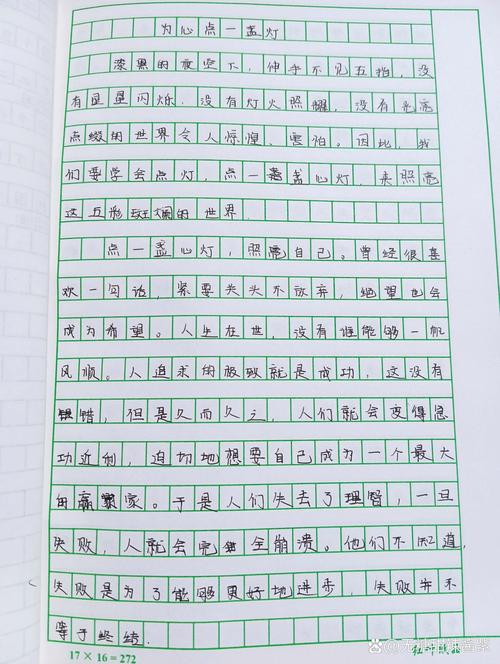 为心点一盏灯
漆黑的夜空下，伸手不见五指，没
有星星闪烁，没有灯火照耀，没有光亮
点缀的世界令人惊惶、害怕。因此，我
们要学会点灯，点一盏心灯，来照亮
这五彩斑斓的世界.
点一盏心灯，照亮自己。曾经很喜
欢一句话，紧要关头不放弃，绝望也会
成为希望。人生在世，没有谁能够一帆
风顺。人追求的极致就是成功，这没有
错，但是久而久之，人们就会变得急
功近利，迫切地想要自己成为一个最大
的赢家。于是人们失去了理智，一旦
失败，人就会完全崩溃。他们不知道，
失败是为了能够更好地进步，失败并不
等于终结.
17×16=272